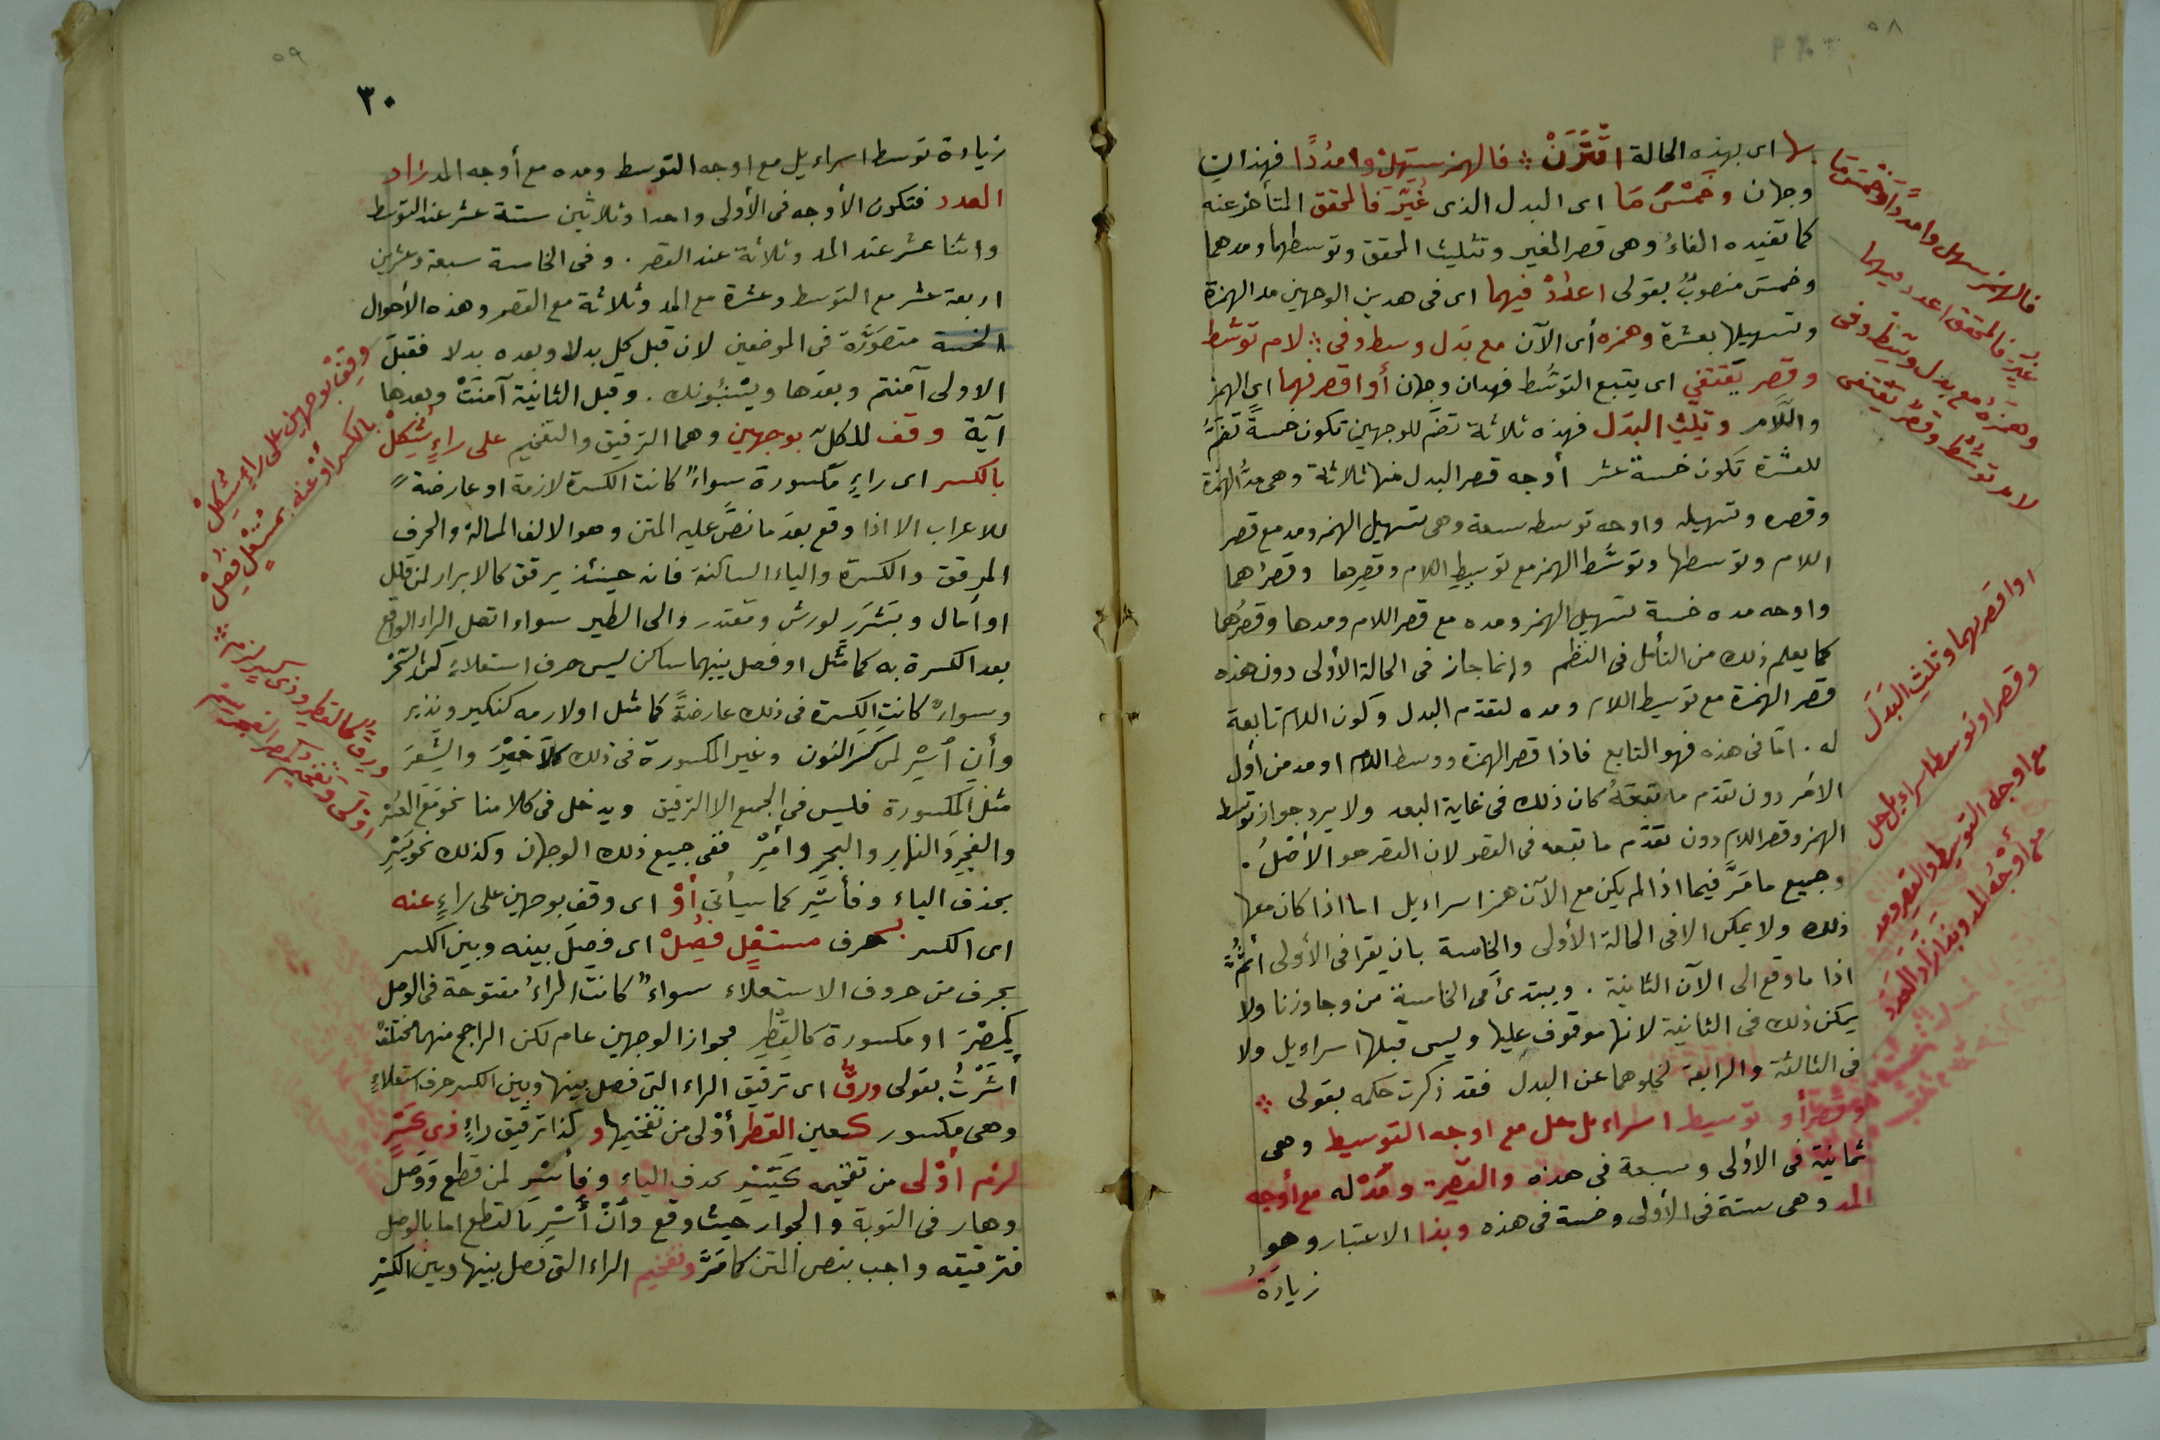 ٥٨
بها اى بهذه الحالة اقْتَرَنْ ؞ فالهمز سهِّلْ وامدُدًا فهذان
وجهان وخَمْسٌ مَا اى البدل الذى غُيِّرَ فالمحقق المتأخر عنه
كما تفيده الفاءُ وهى قصر المغير وتثليث المحقق وتوسطهما ومدهما
وخمسَ منصوبٌ بقولى اعدُدْ فيهما اى فى هدين الوجهين مد الهمزة
وتسهيلها بعشرة وهمزه أى الآن مع بدَل وسط وفى ؞ لام توسُّط
وقصر يَقْتفي اى يتبع التوسُط فهدان وجهان أو اقصرنهما اى الهمز
واللّام وثلِّثِ البدَل فهذه ثلاثة تضم للوجهين تكون خمسةً تضمُّ
للعشرة تكون خمسة عشر أوجه قصر البدل منها ثلاثة وهى مدُّ الهمزة
وقصره وتسهيله واوجه توسطه سبعة وهى تسهيل الهمز ومد مع قصر
اللام وتوسطها وتوسُّط الهمز مع توسيطِ اللام وقصرِها وقصرُهما
واوجه مده خمسة تسهيل الهمز ومده مع قصر اللام ومدها وقصرُهما
كما يعلم ذلك من التأمل فى النظم وإنما جاز فى الحالة الأولى دون هذه
قصر الهمزة مع توسيط اللام ومده لتقدم البدل وكون اللام تابعة
له . امّا فى هذه فهو التابع فاذا قصر الهمزة ووسط اللام او مد من أول
الامر دون تقدم ما تبعَهُ كان ذلك فى غاية البعد ولا يرد جواز توسط
الهمز وقصر اللام دون تقدّم ما تبعه فى القصر لان القصر هو الأصْلُ .
وجميع ما مَرَّ فيما اذا لم يكن مع الآن همز اسراءيل اما اذا كان معها
ذلك ولا يمكن الا فى الحالة الأولى والخامسة بان يقرا فى الأولى أَثُمَّ
اذا ما وقع الى الآن الثانية . ويبتدئَ فى الخامسة من وجاوزنا ولا
يمكن ذلك فى الثانية لانها موقوف عليها وليس قبلها اسراءيل ولا
فى الثالثة والرابعة لخلوهما عن البدل فقد ذكرت حكمه بقولى ؞
وقصرًا و توسيط اسراءيل حل مع اوجه التوسيط وهى
ثمانية فى الأولى وسبعة فى هذه والقصر ومُدّ له مع أوجه
المد وهى ستة فى الأولى وخمسة فى هذه وبذا الاعتبار وهو
زيادةُ
فالهمز سهل وامددًا وخمسَ مَا
غيِّر فالمحقق اعدد فيهما
وهمزهُ مع بدل وسِّط وفى
لام توسُّط وقصرٌ يقتفى
او اقصرنهما وثلثِ البدَل
وقصرا وتوسط اسراءيل حل
مع اوجه التوسيط والقصر ومد
مع اوْجُهُ المد وبذا زَادَ العَدَد
٥٩
٣٠
زيادة توسط اسراءيل مع اوجه التوسط ومده مع أوجه المد زاد
العدد فتكون الأوجه فى الأولى واحدا وثلاثين ستة عشر عند التوسط
واثنا عشر عند المد وثلاثة عند القصر . وفى الخامسة سبعة وعشرين
اربعة عشر مع التوسط وعشرة مع المد وثلاثة مع القصر وهذه الأحوال
الخمسة متصوَّرة فى الموضعين لان قبل كل بدلا وبعده بدلا فقبل
الاولى آمنتم وبعدَها ويسْتنبئونك . وقبل الثانية آمنَتْ وبعدها
آية وقف للكلّ بوجهين وهما الترقيق والتفخيم على راءٍ شُكِلْ
بالكسر اى راءٍ مكسورة سواءٌ كانت الكسرة لازمة او عارضةً
للاعراب الا اذا وقع بعدَ ما نصَّ عليه المتن وهو الالف الممالة والحرف
المرقق والكسرة والياء الساكنة فانه حينئذ يرقق كالابرار لمن قلل
او أمال وبشَرَرٍ لورش ومقتدر والى الطير سواء اتصل الراء الواقع
بعد الكسرة به كما مُثِّل او فصل بينهما ساكن ليس حرف استعلاءٍ كمن السِّحْر
وسواءٌ كانت الكسرة فى ذلك عارضةً كما مثل او لازمه كنكير ونذير
وأن اسْرِ لمن كسَرَ النون وغير المكسورة فى ذلك كلاَ خَيْرَ والشِّعْرَ
مثل المكسورة فليس فى الجميع الا الترقيق ويدخل فى كلامنا نحو مَعَ العُسْر
والفجرِ والنهارِ والبحرِ وأمْرِ ففى جميع ذلك الوجهان وكذلك نحو يَسْرِ
بحذف الياء وفأسْرِ كما سيأتى أوْ اى وقف بوجهين على راءٍ عنه
اى الكسر بحرف مستَعْلٍ فُصِلْ اى فصِلَ بينه وبين الكسر
بحرف من حروف الاستعلاء سواءٌ كانت الراءُ مفتوحة فى الوصل
كَمِصْرَ او مكسورة كالقِطْرِ فجواز الوجهين عام لكن الراجح منهما مختلفٌ
أشَرْتُ بقولى ورقُّ اى ترقيق الراء التى فصل بينها وبين الكسر حرف استعلاءٍ
وهى مكسور كعين القطر أوْلى من تفخيمها وكذا ترقيق راءٍ ذى كسْرٍ
لزم أوْلى من تفخيمه كيَسْرِ بحدف الياءِ وفأسْرِ لمن قطع ووصل
وهار فى التوبة والجوار حيث وقع وأنْ أسْرِ بالقطع اما بالوصل
فترقيقه واجب بنص المتن كما مَرَّ وتفخيم الراء التى فصل بينها وبين الكسْرِ
وقِفْ بوجهين على راءٍ شُكِلْ
بالكسر اوْ عنه بمسْتَعْلٍ فُصِلْ
ورِقُّ كالقطر وذى كسرٍ لزم ؞